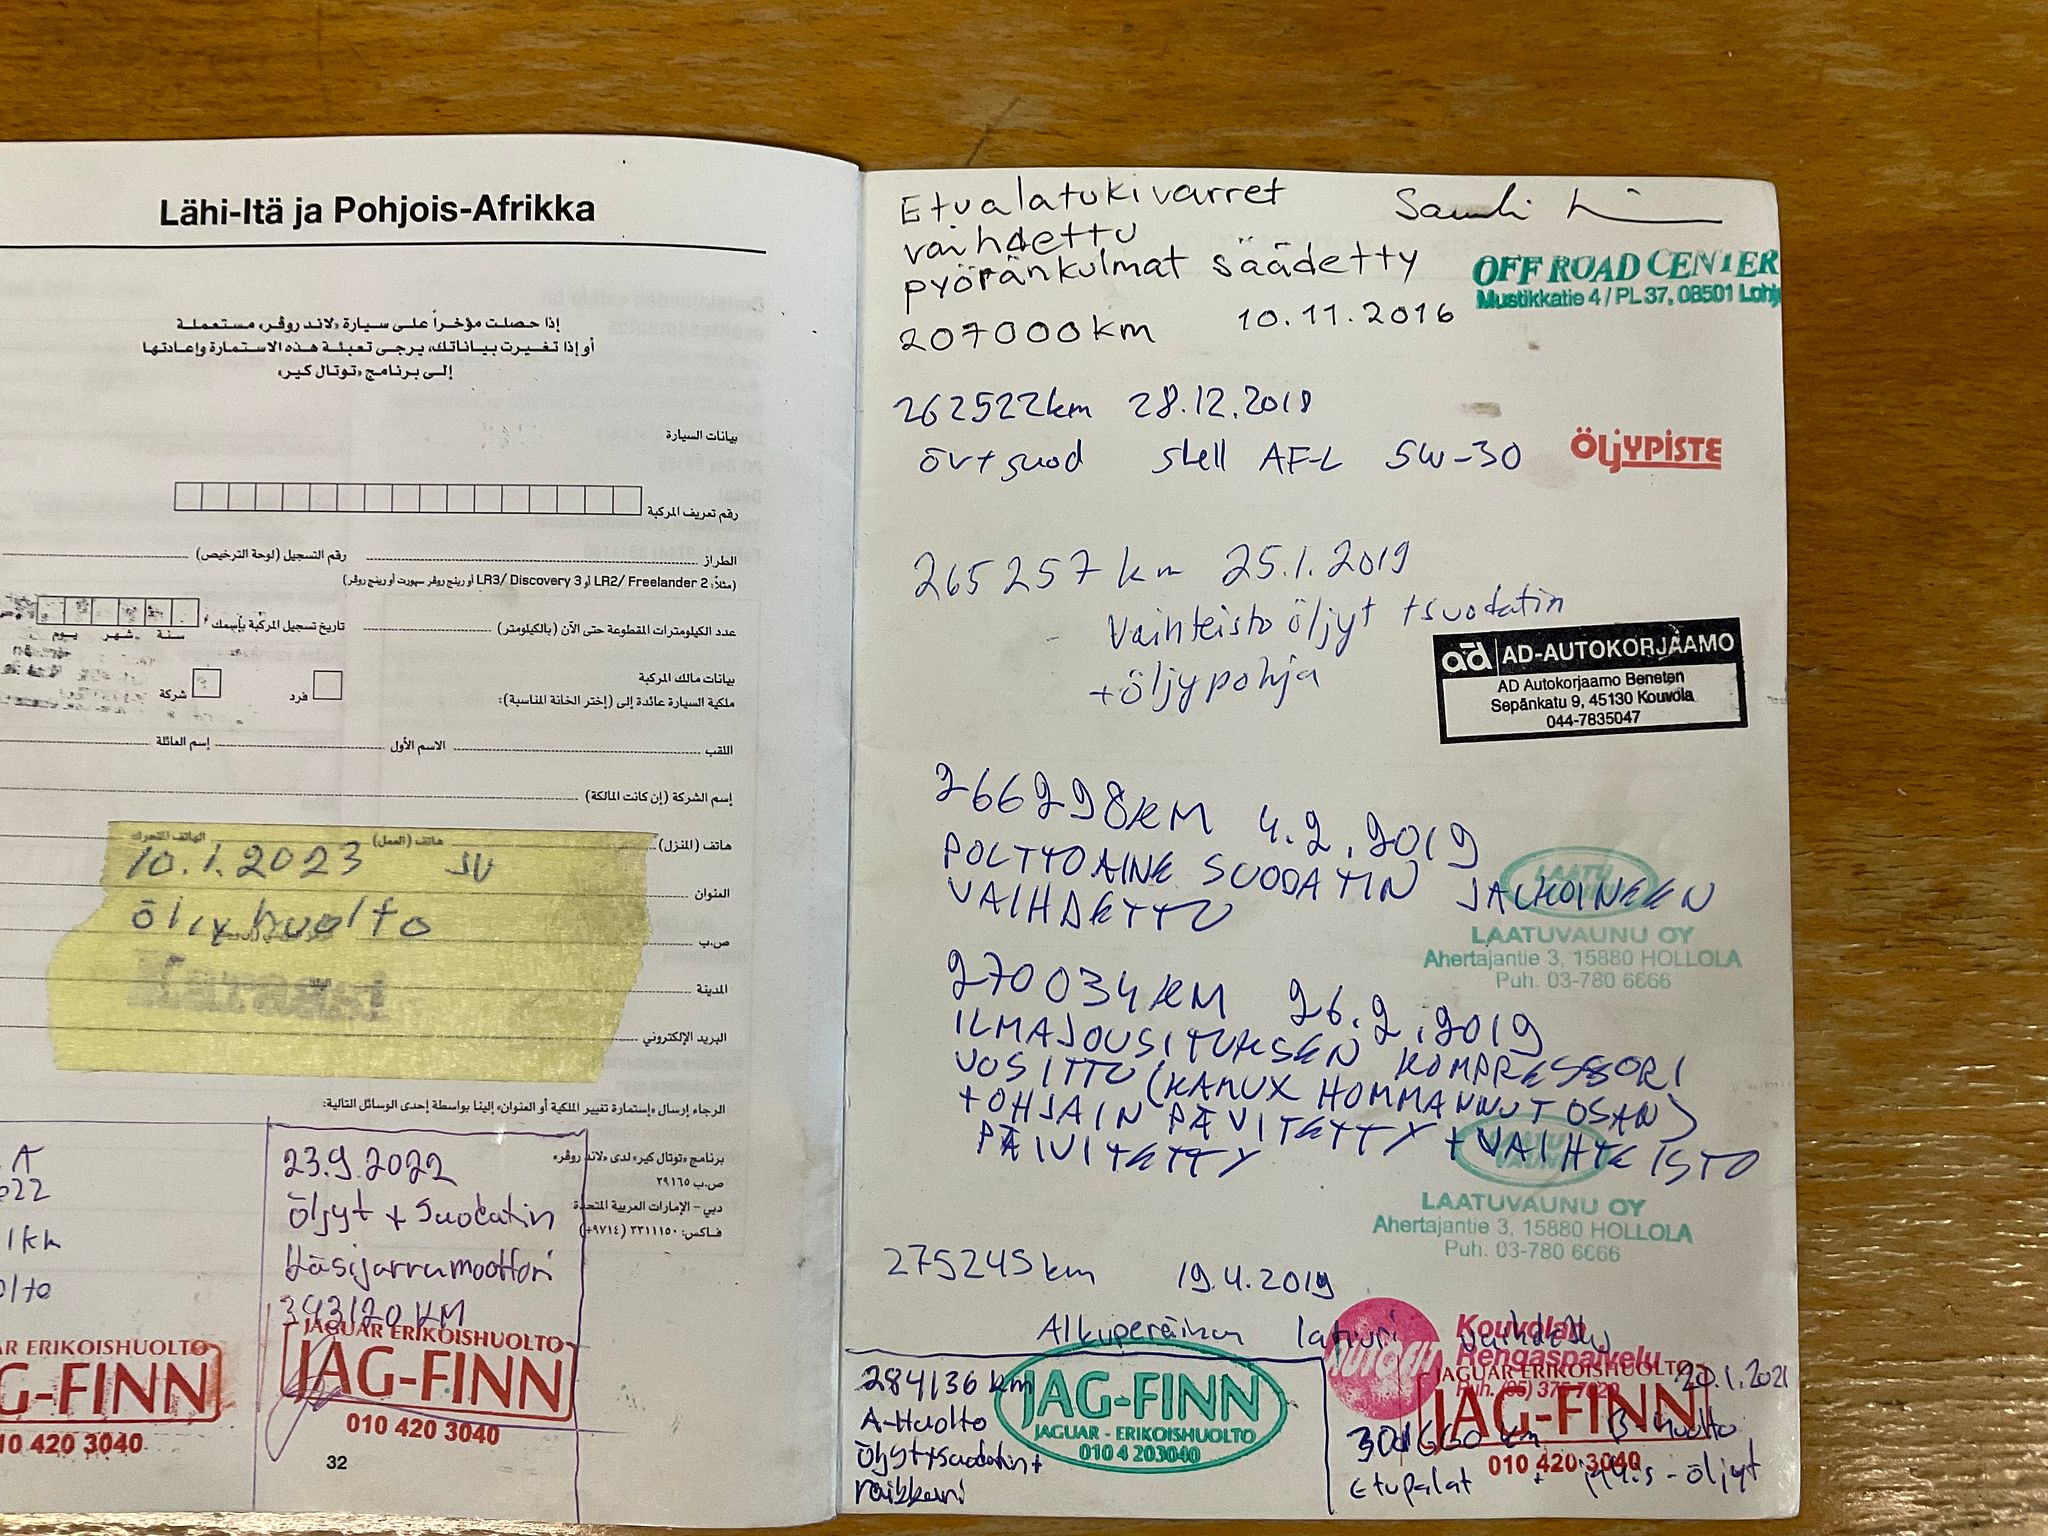 Lähi-Itä ja Pohjois-Afrikka
إذا حصلت مؤخراً على سيارة «لاند روڤر» مستعملة
أو إذا تغيرت بياناتك، يرجى تعبئة هذه الاستمارة وإعادتها
إلى برنامج «توتال كير»
بيانات السيارة
رقم تعريف المركبة
الطراز
رقم التسجيل (لوحة الترخيص)
(مثلاً: LR2/ Freelander 2 أو LR3/ Discovery 3 أو رينج روڤر سبورت أو رينج روڤر)
عدد الكيلومترات المقطوعة حتى الآن (بالكيلومتر)
تاريخ تسجيل المركبة بإسمك
يوم شهر سنة
بيانات مالك المركبة
ملكية السيارة عائدة إلى (إختر الخانة المناسبة):
فرد
شركة
اللقب
الاسم الأول
إسم العائلة
إسم الشركة (إن كانت المالكة)
هاتف (المنزل)
هاتف (العمل)
الهاتف المتحرك
العنوان
ص.ب
المدينة
البريد الإلكتروني
10.1.2023 JV
öljyhuolto
الرجاء إرسال «إستمارة تغيير الملكية أو العنوان» إلينا بواسطة إحدى الوسائل التالية:
برنامج «توتال كير» لدى «لاند روڤر»
ص.ب ٢٩١٦٥
دبي – الإمارات العربية المتحدة
فـاكس: ٣٣١١١٥٠ (٩٧١٤+)
23.9.2022
öljyt + suodatin
Käsijarrumoottori
343120 KM
JAGUAR ERIKOISHUOLTO
JAG-FINN
010 420 3040
AR ERIKOISHUOLTO
G-FINN
10 420 3040
32
Etualatukivarret
vaihdettu
pyöränkulmat säädetty
207000km 10.11.2016
OFF ROAD CENTER
Mustikkatie 4 / PL 37, 08501 Lohj
262522km 28.12.2018
öv+suod shell AF-L 5W-30
ÖLJYPISTE
265257 km 25.1.2019
- Vaihteisto öljyt +suodatin
+ öljypohja
ad AD-AUTOKORJAAMO
AD Autokorjaamo Beneten
Sepänkatu 9, 45130 Kouvola
044-7835047
266298KM 4.2.2019
POLTTOAINE SUODATIN JALKOINEEN
VAIHDETTU
LAATUVAUNU OY
Ahertajantie 3, 15880 HOLLOLA
Puh. 03-780 6666
270034KM 26.2.2019
ILMAJOUSITUKSEN KOMPRESSORI
UUSITTU (KAMUX HOMMANNUT OSAN)
+OHJAIN PÄVITETTY + VAIHTEISTO
PÄIVITETTY
LAATUVAUNU OY
Ahertajantie 3, 15880 HOLLOLA
Puh. 03-780 6666
275245km 19.4.2019
Alkuperäinen laturi vaihdettu
Kouvolan
Rengaspalvelu
284136 km
A-Huolto
öljyt+suodatin+
raikkari
JAG-FINN
JAGUAR - ERIKOISHUOLTO
010 4 203040
JAGUAR ERIKOISHUOLTO
JAG-FINN
010 420 3040
20.1.2021
301660 km B-Huolto
Etupalat + öljyt